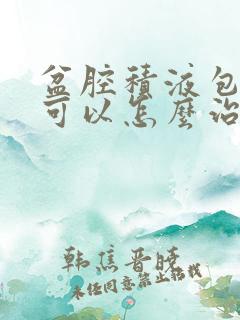 盆腔積液包
可以怎麼治
韩焦晋晓
未经同意禁止搬栽